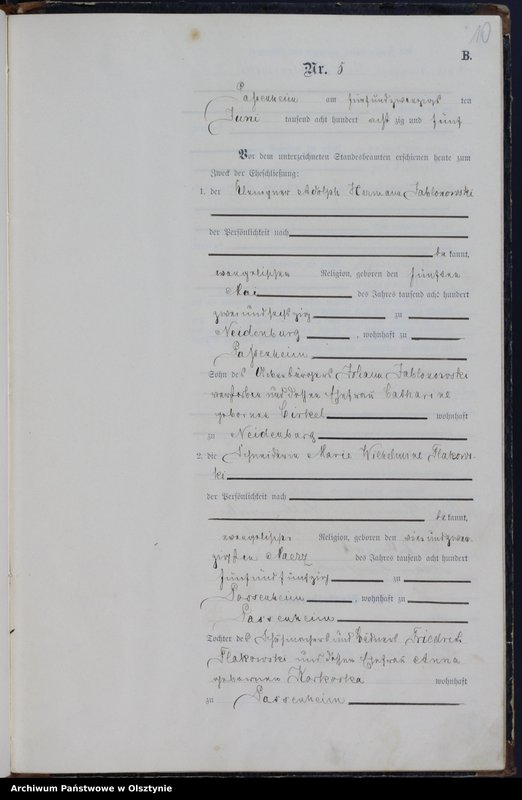 10
B.
Nr. 5
Passenheim am fünfundzwanzigs ten
Juni tausend acht hundert acht zig und fünf
Vor dem unterzeichneten Standesbeamten erschienen heute zum
Zweck der Eheschließung:
1. der Klempner Adolph Hermann Jablonowski
der Persönlichkeit nach
be kannt,
evangelischer Religion, geboren den fünften
Mai des Jahres tausend acht hundert
zweiundsechszig zu
Neidenburg, wohnhaft zu
Passenheim
Sohn des Ackerbürgers Johann Jablonowski
verstorben und dessen Ehefrau Catharine
geborne Cirkel wohnhaft
zu Neidenburg
2. die Schneiderin Marie Wilhelmine Flakows-
ki
der Persönlichkeit nach
be kannt,
evangelischer Religion, geboren den vierundzwan-
zigsten Maerz des Jahres tausend acht hundert
fünfundfünfzig zu
Passenheim, wohnhaft zu
Passenheim
Tochter des und Friedrich
Flakowski und dessen Ehefrau Anna
geborenen wohnhaft
zu Passenheim
Archiwum Państwowe w Olsztynie